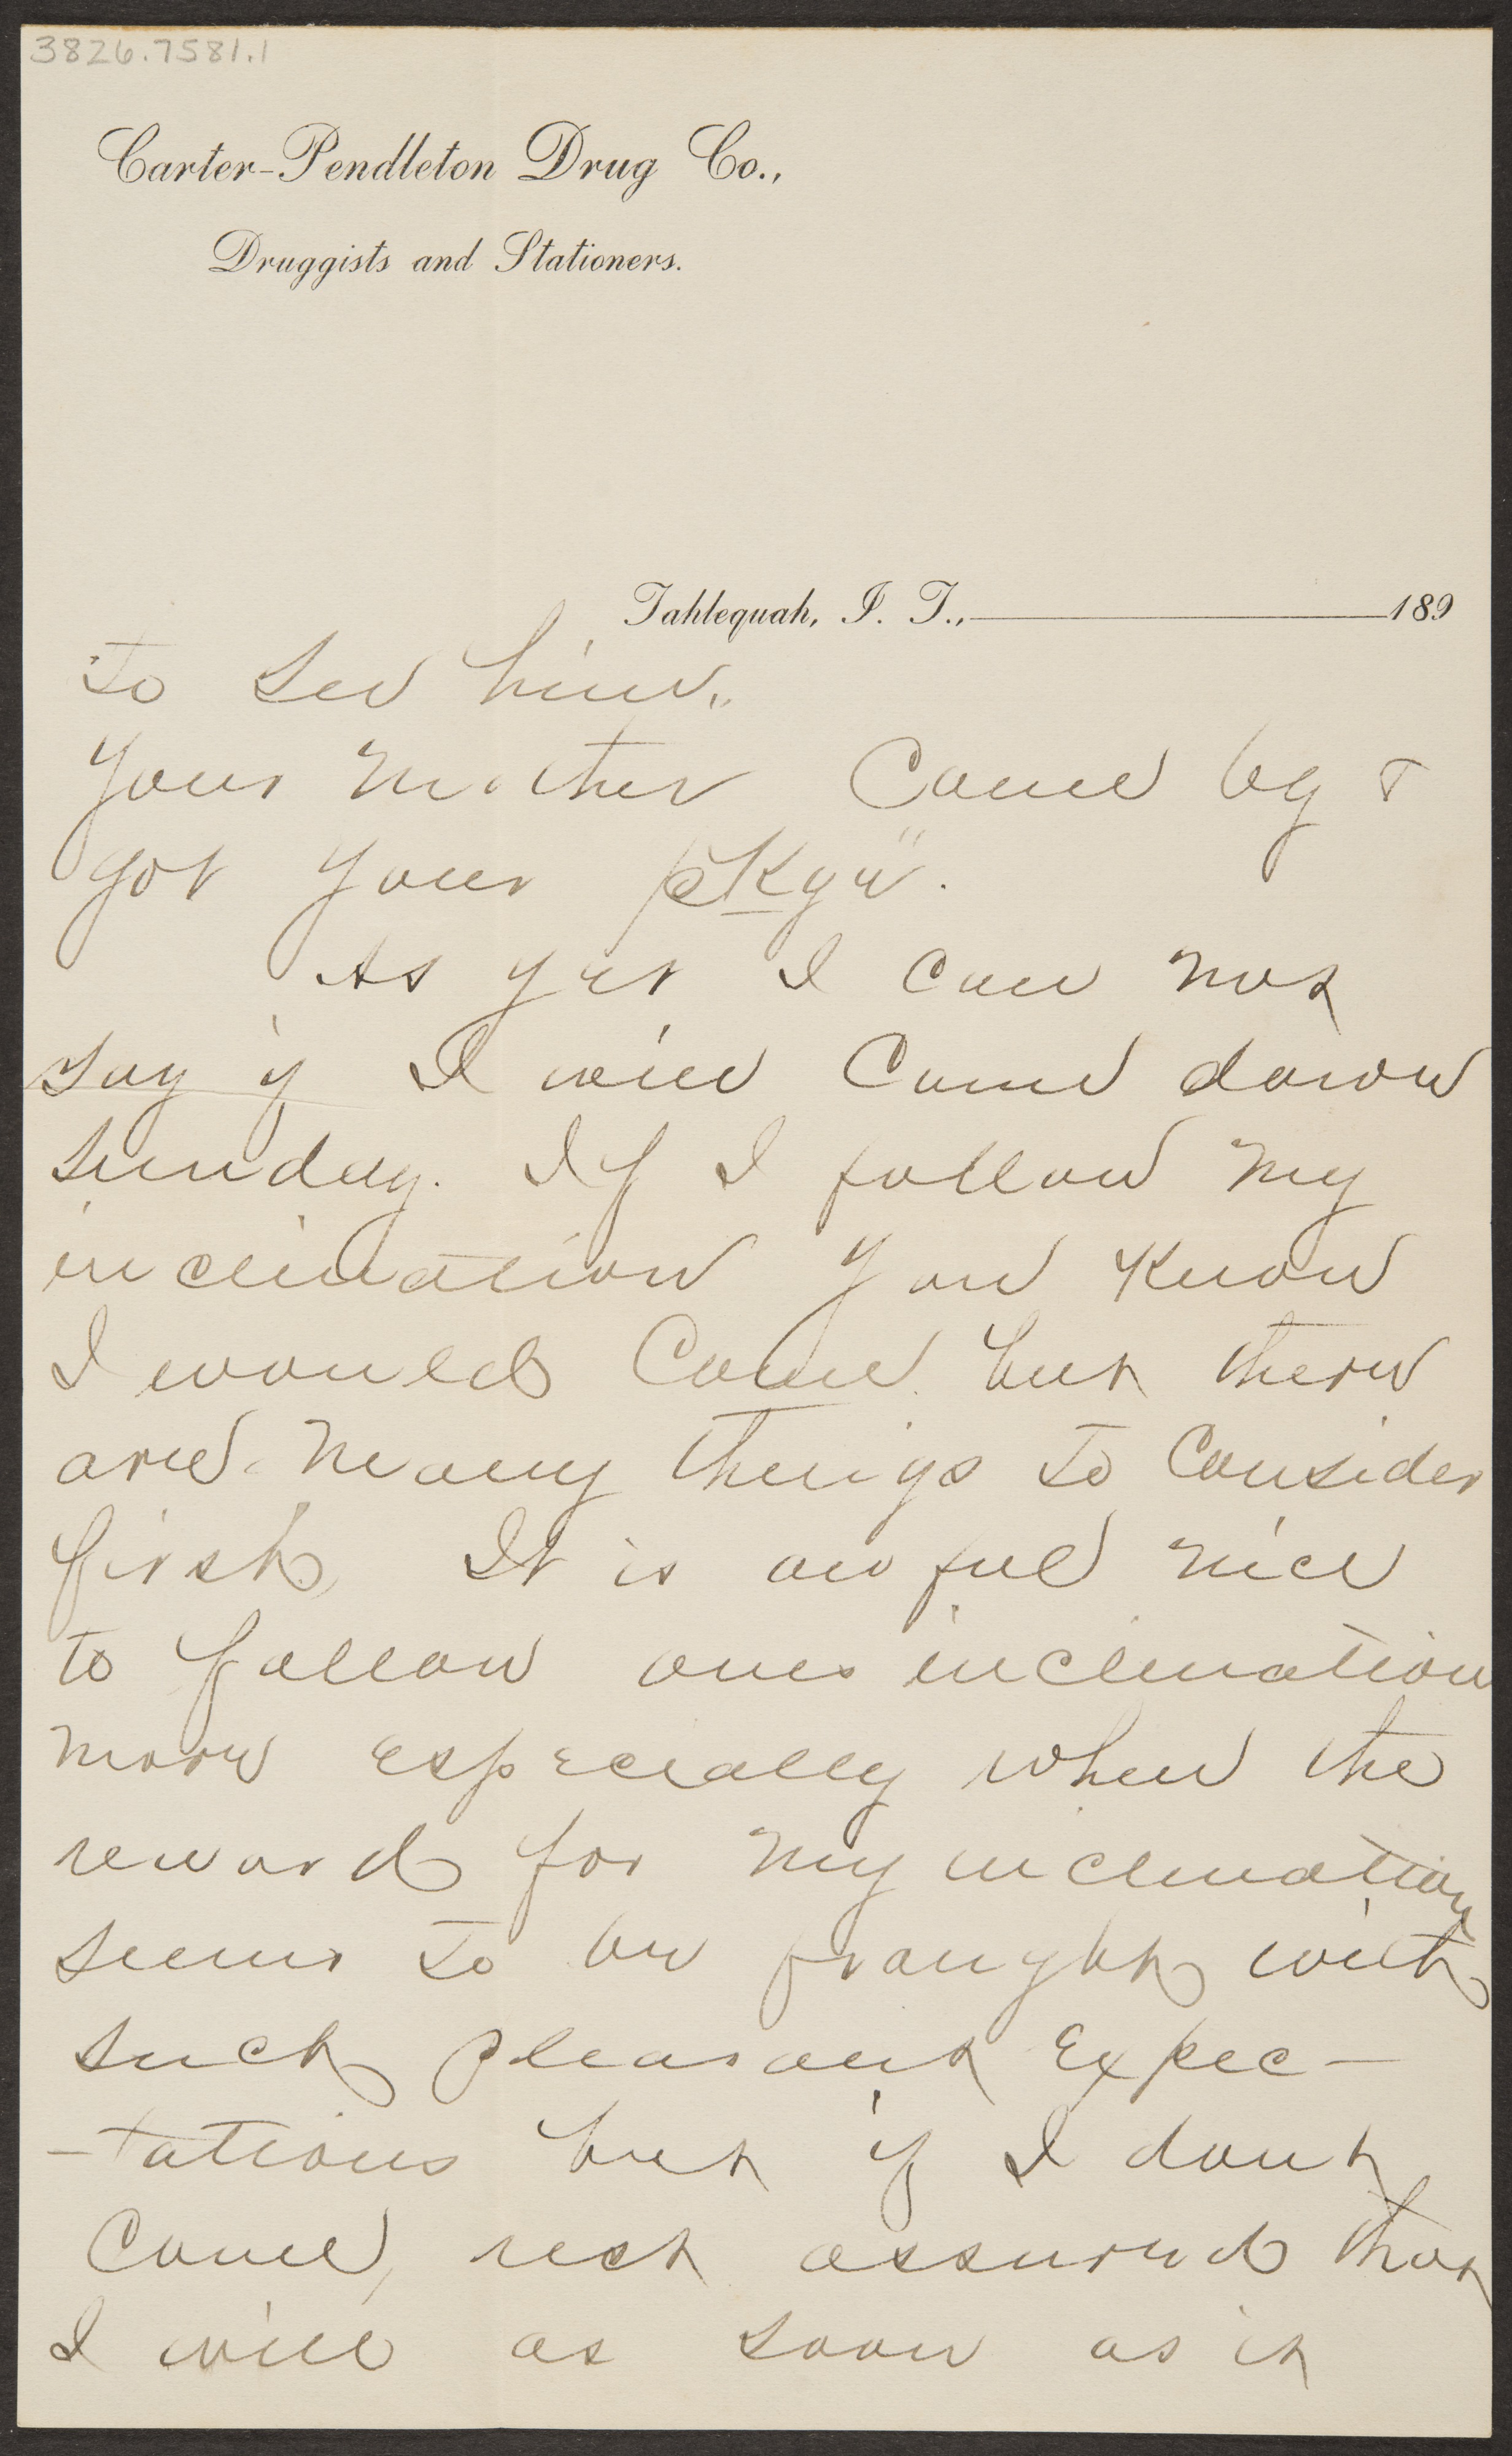 3826.7581.1
Carter-Pendleton Drug Co.,
Druggists and Stationers.
Tahlequah, I. T., 189
to see him.
Your mother came by &
got your "pkge".
As yet I can not
say if I will come down
Sunday. If I follow my
inclination you know
I would come but there
are many things to consider
first. It is awful nice
to follow ones inclination
more especially when the
reward for my inclination
seems to be fraught with
such pleasant expec-
-tations but if I dont
come, rest assured that
I will as soon as it